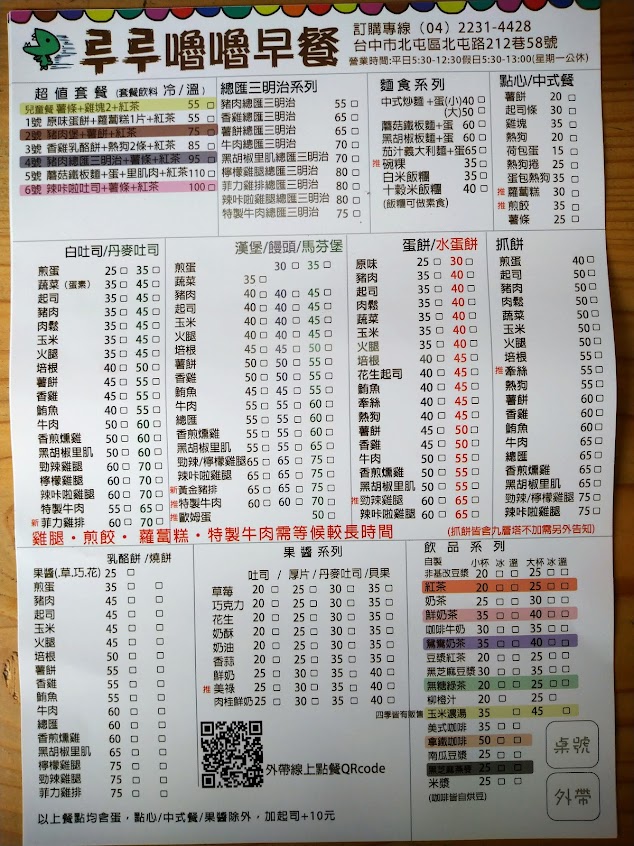 嚕嚕嚕嚕早餐
訂購專線（04）2231-4428
台中市北屯區北屯路212巷58號
營業時間:平日5:30-12:30假日5:30-13:00(星期一公休)
超值套餐 (套餐飲料 冷/溫)
兒童餐 薯條+雞塊2+紅茶 55
1號 原味蛋餅+蘿蔔糕1片+紅茶 55
2號 豬肉堡+薯餅+紅茶 75
3號 香雞乳酪餅+熱狗2條+紅茶 85
4號 豬肉總匯三明治+薯條+紅茶 95
5號 蘑菇鐵板麵+蛋+里肌肉+紅茶 110
6號 辣咔啦吐司+薯條+紅茶 100
總匯三明治系列
豬肉總匯三明治 55
香雞總匯三明治 65
薯餅總匯三明治 65
牛肉總匯三明治 70
黑胡椒里肌總匯三明治 70
檸檬雞腿總匯三明治 80
菲力雞排總匯三明治 80
辣咔啦總匯三明治 80
特製牛肉總匯三明治 75
麵食系列
中式炒麵+蛋(小) 40
(大) 50
蘑菇鐵板麵+蛋 60
黑胡椒板麵+蛋 60
茄汁義大利麵+蛋 65
推 碗粿 35
白米飯糰 35
十穀米飯糰 40
(飯糰可做素食)
點心/中式餐
薯餅 20
起司條 30
雞塊 35
熱狗 20
荷包蛋 15
熱狗捲 25
蛋包熱狗 35
推 蘿蔔糕 30
推 煎餃 35
薯條 25
白吐司/丹麥吐司
煎蛋 25 35
蔬菜(蛋素) 35 45
起司 35 45
豬肉 35 45
肉鬆 35 45
玉米 35 45
火腿 35 45
培根 40 50
薯餅 45 55
香雞 45 55
鮪魚 40 55
牛肉 50 60
香煎燻雞 50 60
黑胡椒里肌 50 60
勁辣雞腿 60 70
檸檬雞腿 60 70
辣咔啦雞腿 60 70
新 菲力雞排 60 70
漢堡/饅頭/馬芬堡
煎蛋 30 35
蔬菜 35
豬肉 40 40 45
起司 40 40 45
肉鬆 40 40 45
玉米 40 40 45
火腿 40 40 45
培根 45 45 50
薯餅 50 50 55
香雞 50 50 55
鮪魚 45 45 55
牛肉 55 55 60
總匯 55 55 60
香煎燻雞 55 55 60
黑胡椒里肌 55 55 60
勁辣/檸檬雞腿 65 65 75
辣咔啦雞腿 65 65 75
新 黃金豬排 65 65 75
推 特製牛肉 60 60 65
推 歐姆蛋 50
蛋餅/水蛋餅
原味 25 30
豬肉 35 40
起司 35 40
肉鬆 35 40
蔬菜 35 40
玉米 35 40
火腿 35 40
培根 40 45
花生起司 40 45
鮪魚 40 45
牽絲 40 45
熱狗 40 45
薯餅 45 50
香雞 45 50
牛肉 50 55
香煎燻雞 50 55
黑胡椒里肌 50 55
推 勁辣雞腿 60 65
辣咔啦雞腿 60 65
抓餅
煎蛋 40
起司 50
豬肉 50
肉鬆 50
蔬菜 50
玉米 50
火腿 50
培根 55
推 牽絲 55
熱狗 55
薯餅 60
香雞 60
鮪魚 60
牛肉 65
總匯 65
香煎燻雞 65
黑胡椒里肌 65
勁辣雞腿 75
辣咔啦雞腿 75
雞腿・煎餃・蘿蔔糕・特製牛肉需等候較長時間
(抓餅皆會九層塔不加需另外告知)
乳酪餅/燒餅
果醬(.草.巧.花) 25
煎蛋 35
豬肉 45
起司 45
玉米 45
火腿 45
培根 50
薯餅 55
香雞 55
鮪魚 55
牛肉 60
總匯 60
香煎燻雞 60
黑胡椒里肌 65
檸檬雞腿 75
勁辣雞腿 75
菲力雞排 75
以上餐點均含蛋，點心/中式餐/果醬除外，加起司+10元
果醬系列
吐司/厚片/丹麥吐司/貝果
草莓 20 25 30 35
巧克力 20 25 30 35
花生 20 25 30 35
奶酥 20 25 30 35
奶油 20 25 30 35
香蒜 20 25 30 35
鮮奶 25 30 35 40
推 美祿 25 30 35 40
肉桂鮮奶 25 30 35 40
外帶線上點餐QRcode
飲品系列
自製 小杯 冰 溫 大杯 冰 溫
非基改豆漿 20 25
紅茶 20 25
奶茶 25 30
鮮奶茶 30 35
咖啡牛奶 30 35
鴛鴦奶茶 35 40
豆漿紅茶 20 25
黑芝麻豆漿 30 35
無糖綠茶 20 25
柳橙汁 20 25
四季皆有販售 玉米濃湯 35 45
美式咖啡 35
拿鐵咖啡 50
南瓜豆漿 25
25
米漿 25
(咖啡皆自烘豆)
桌號
外帶